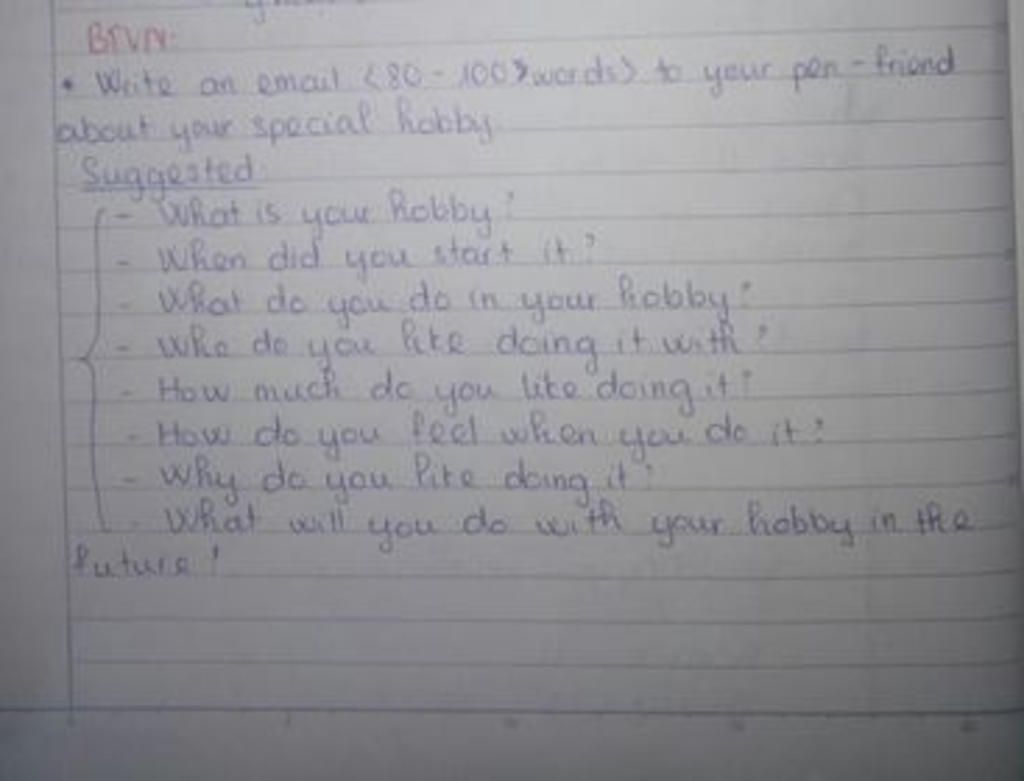 BTVN:
• Write an email <80-100> words> to your pen-friend
about your special hobby
Suggested:
- What is your hobby?
- When did you start it?
- What do you do in your hobby?
- Who do you like doing it with?
- How much do you like doing it?
- How do you feel when you do it?
- Why do you like doing it?
- What will you do with your hobby in the
future?